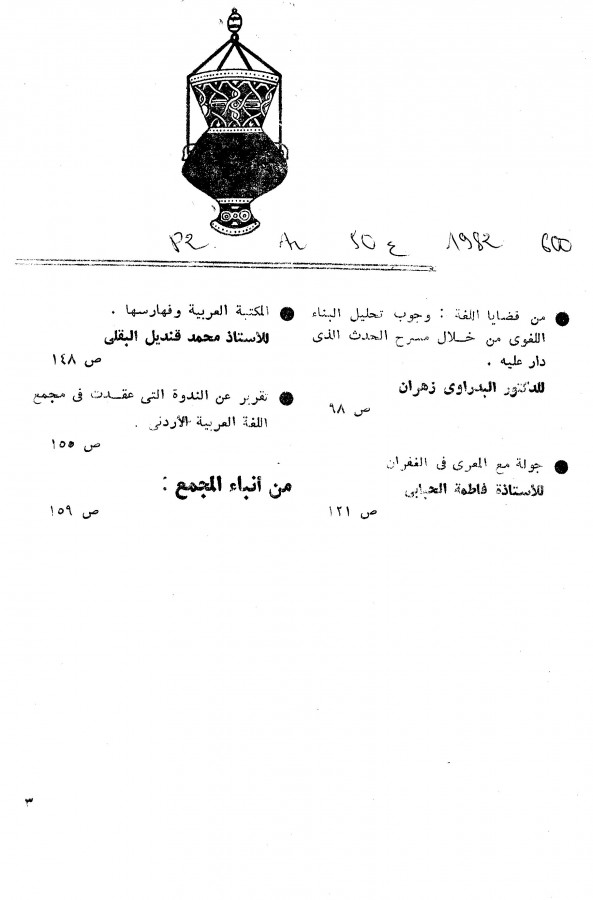 P2 Ar 50 ع 1982 600
● من قضايا اللغة : وجوب تحليل البناء
اللغوى من خلال مسرح الحدث الذى
دار عليه .
للدكتور البدراوى زهران
ص ٩٨
● جولة مع المعرى فى الغفران
للأستاذة فاطمة الحبابى
ص ١٢١
● المكتبة العربية وفهارسها .
للأستاذ محمد قنديل البقلى
ص ١٤٨
● تقرير عن الندوة التى عقدت فى مجمع
اللغة العربية الأردنى .
ص ١٥٥
من أنباء المجمع :
ص ١٥٩
٣